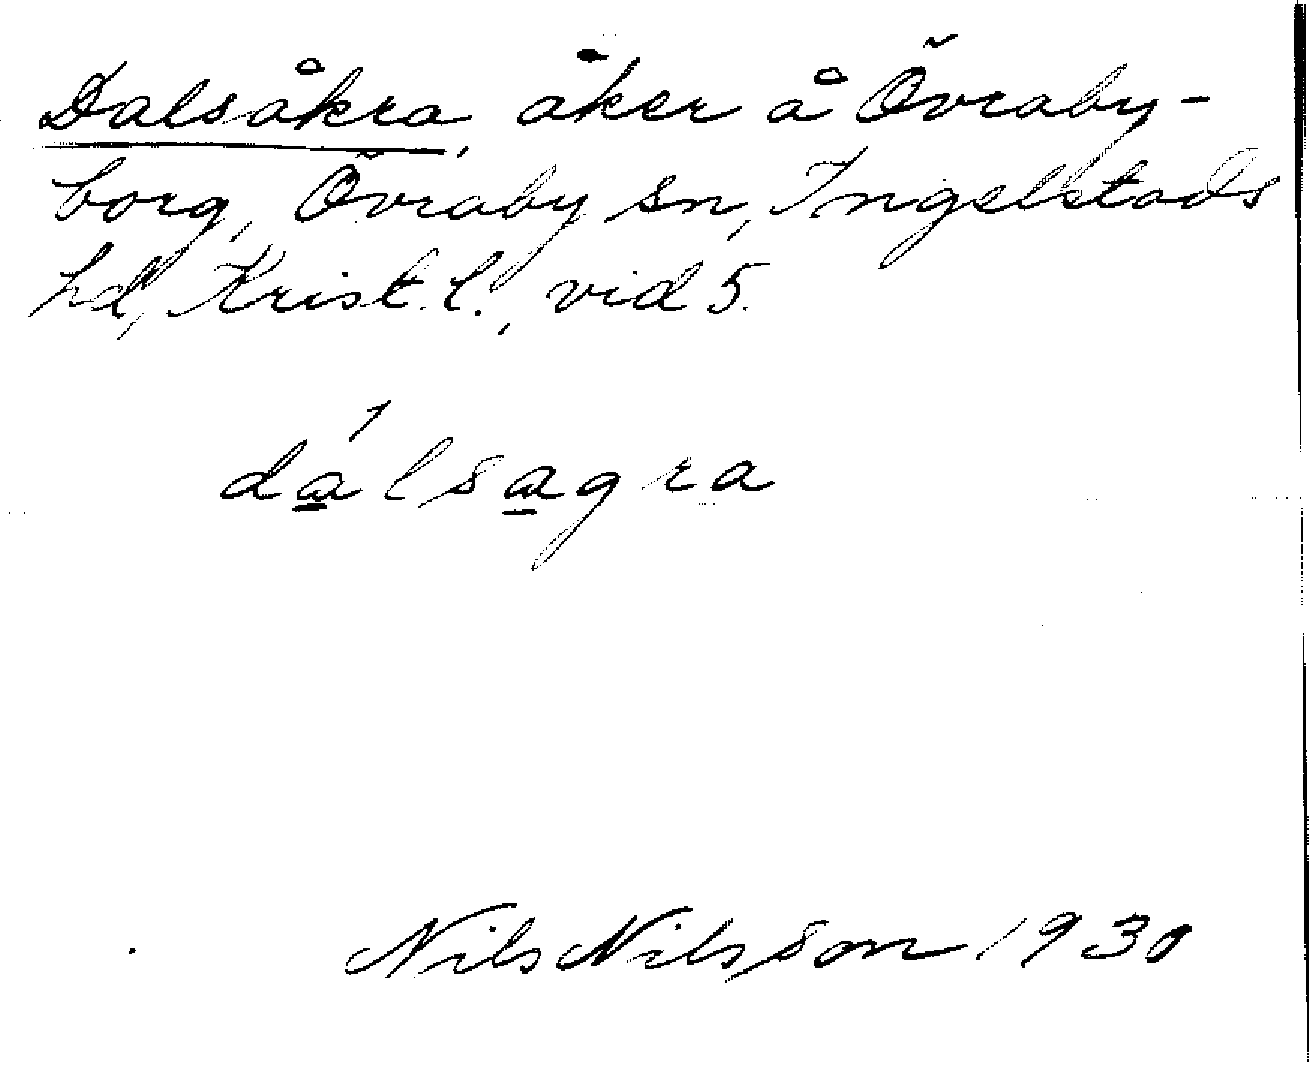 Dalsåkra, åker å Övraby-
borg, Övraby sn, Ingelstads
hd, Krist. l., vid 5.
dά̱lsα̱gra
Nils Nilsson 1930